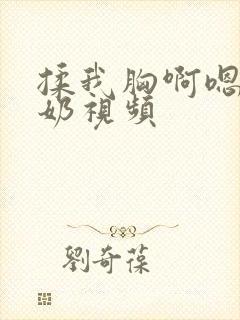 揉我胸啊嗯
奶視頻
劉奇葆